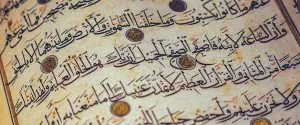 عنهم ما كانوا يكسبون وما خلقنا السموت والارض وما بينهما الا
وان الساعة لاتية فاصفح الصفح الجميل ان ربك هو الخلق العليم
سبعا من المثانى والقران العظيم لا تمدن عينيك الى ما متعنا به
ولا تحزن عليهم واخفض جناحك